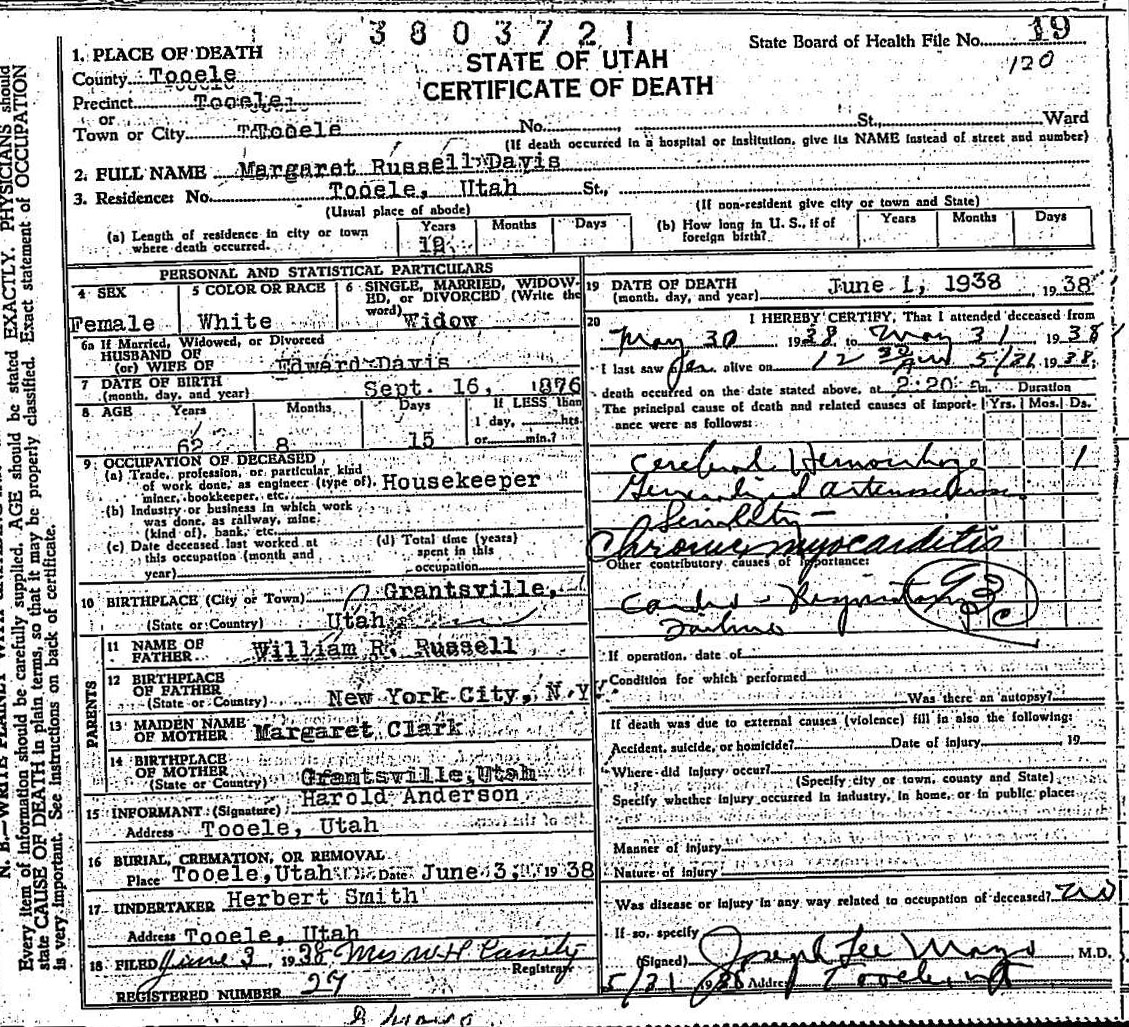 3803721
State Board of Health File No. 19
120
STATE OF UTAH
CERTIFICATE OF DEATH
1. PLACE OF DEATH
County Tooele
Precinct Tooele
or
Town or City Tooele No. St. Ward
(If death occurred in a hospital or institution, give its NAME instead of street and number)
2. FULL NAME Margaret Russell Davis
3. Residence: No. Tooele, Utah St.,
(Usual place of abode) (If non-resident give city or town and State)
(a) Length of residence in city or town where death occurred. Years 12 Months Days
(b) How long in U. S., if of foreign birth? Years Months Days
PERSONAL AND STATISTICAL PARTICULARS
4 SEX Female
5 COLOR OR RACE White
6 SINGLE, MARRIED, WIDOWED, or DIVORCED (Write the word) Widow
6a If Married, Widowed, or Divorced
HUSBAND OF
(or) WIFE OF Edward Davis
7 DATE OF BIRTH
(month, day, and year) Sept. 16, 1876
8 AGE Years 62 Months 8 Days 15
If LESS than
1 day, hrs.
or min.?
9 OCCUPATION OF DECEASED
(a) Trade, profession, or particular kind
of work done, as engineer (type of), Housekeeper
miner, bookkeeper, etc.
(b) Industry or business in which work
was done, as railway, mine
(kind of), bank, etc.
(c) Date deceased last worked at
this occupation (month and
year)
(d) Total time (years)
spent in this
occupation
10 BIRTHPLACE (City or Town) Grantsville,
(State or Country) Utah
PARENTS
11 NAME OF
FATHER William R. Russell
12 BIRTHPLACE
OF FATHER
(State or Country) New York City, N.Y.
13 MAIDEN NAME
OF MOTHER Margaret Clark
14 BIRTHPLACE
OF MOTHER
(State or Country) Grantsville, Utah
15 INFORMANT (Signature) Harold Anderson
Address Tooele, Utah
16 BURIAL, CREMATION, OR REMOVAL
Place Tooele, Utah Date June 3, 1938
17 UNDERTAKER Herbert Smith
Address Tooele, Utah
18 FILED June 3 1938 Mrs W H
Registrar
REGISTERED NUMBER 27
19 DATE OF DEATH
(month, day, and year) June 1, 1938 1938
20 I HEREBY CERTIFY, That I attended deceased from
May 30 1938 to May 31 1938
I last saw her alive on 12 30 5/31 1938
death occurred on the date stated above, at 2:20 m. Duration
The principal cause of death and related causes of importance were as follows: Yrs. Mos. Ds.
Cerebral Hemorrhage 1
Generalized arteriosclerosis
Senility -
Chronic myocarditis
Other contributory causes of importance:
Cardio - Respiratory
Failure
If operation, date of
Condition for which performed
Was there an autopsy?
If death was due to external causes (violence) fill in also the following:
Accident, suicide, or homicide? Date of injury 19
Where did injury occur?
(Specify city or town, county and State)
Specify whether injury occurred in industry, in home, or in public place:
Manner of injury
Nature of injury
Was disease or injury in any way related to occupation of deceased? no
If so, specify
(Signed) Joseph Lee Mayo M.D.
5/31 1938 Address Tooele, Ut
EXACTLY. PHYSICIANS should
Exact statement of OCCUPATION
N. B.—WRITE PLAINLY
Every item of information should be carefully supplied. AGE should be stated
state CAUSE OF DEATH in plain terms, so that it may be properly classified.
is very important. See instructions on back of certificate.